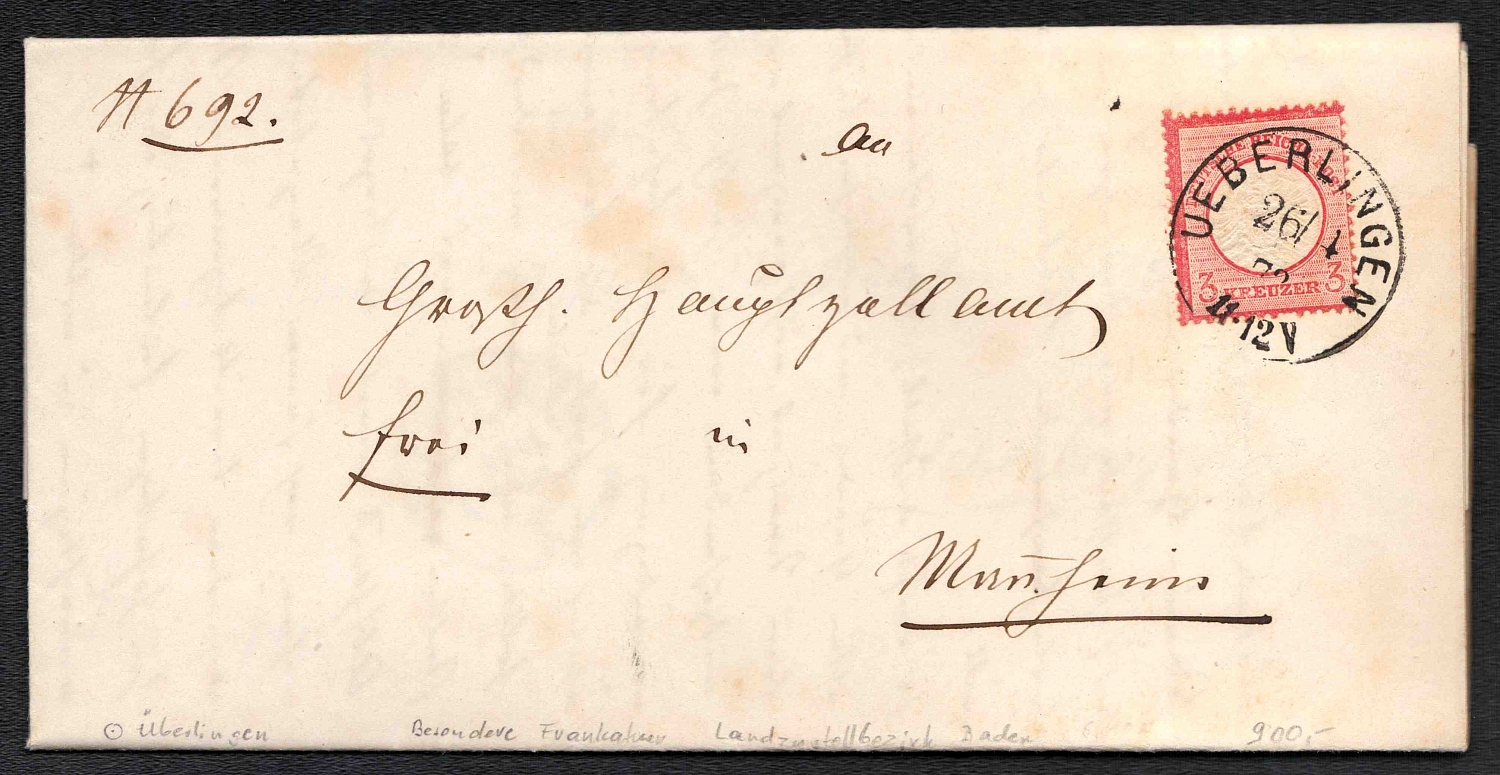 # 692.
an
DEUTSCHE REICHS-POST
UEBERLINGEN
26/4
72
11-12V
3 KREUZER 3
Großh. Hauptzollamt
frei in
Mannheim
Überlingen Besondere Frankatur Landzustellbezirk Baden 900,-